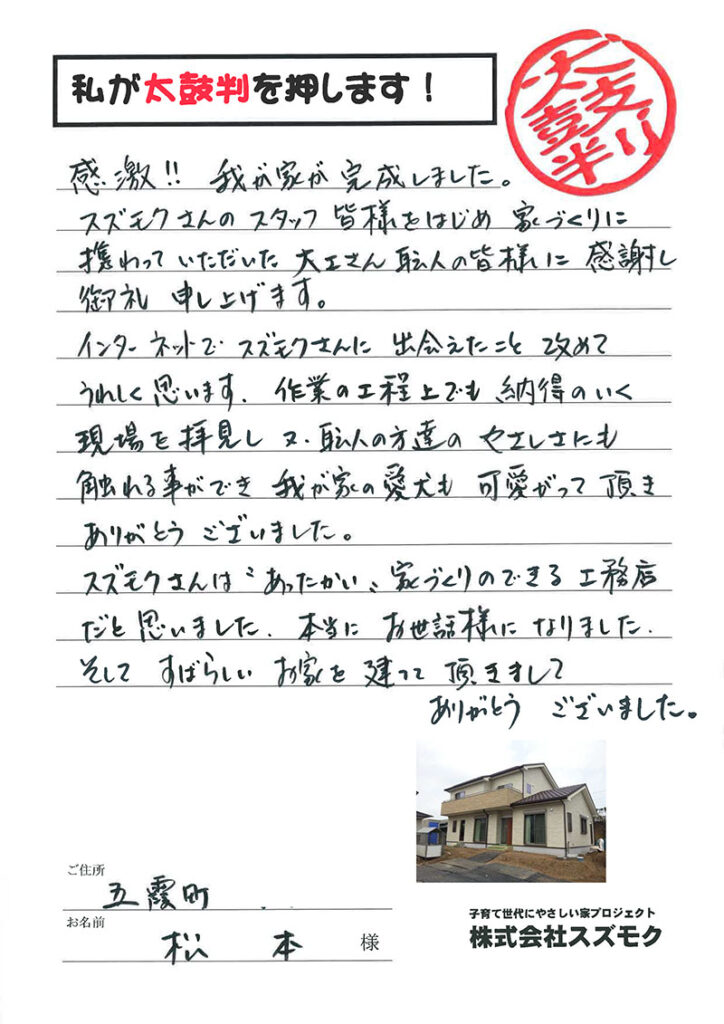 私が太鼓判を押します！
太鼓判
感激!! 我が家が完成しました。
スズモクさんのスタッフ皆様をはじめ 家づくりに
携わっていただいた 大工さん 転人の皆様に 感謝し
御礼 申し上げます。
インターネットで スズモクさんに 出会えたこと 改めて
うれしく思います. 作業の工程上でも 納得のいく
現場を拝見し 又・転人の方達の やさしさにも
触れる事ができ 我が家の愛犬も 可愛がって 頂き
ありがとう ございました。
スズモクさんは〝あったかい〟家づくりのできる 工務店
だと思いました. 本当に お世話様に なりました.
そして すばらしい お家を 建てて 頂きまして
ありがとう ございました。
ご住所
五霞町
お名前
松 本 様
子育て世代にやさしい家プロジェクト
株式会社スズモク